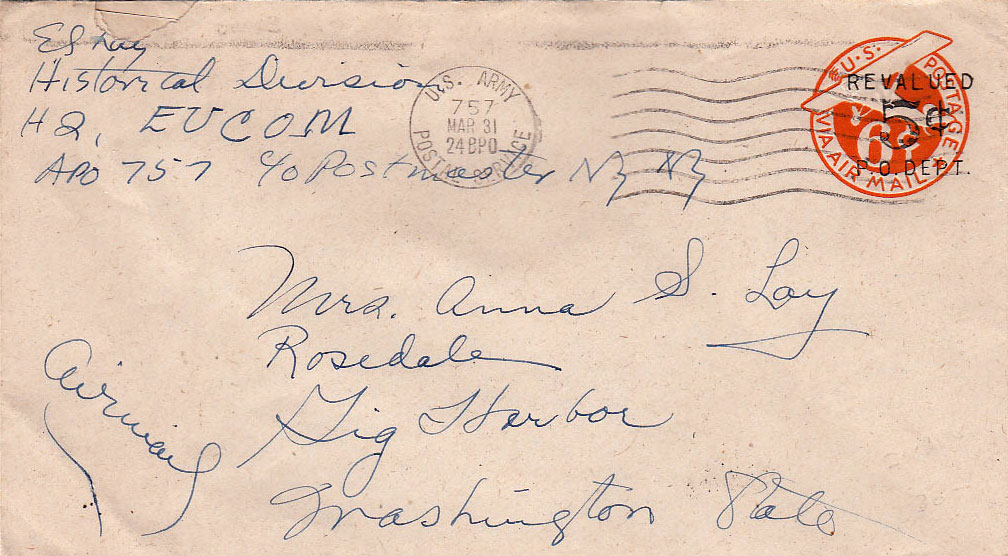 Historical Division
HQ, EUCOM
APO 757 c/o Postmaster NY NY
U.S. ARMY
757
MAR 31
24BPO
POSTAL SERVICE
U.S. POSTAGE
VIA AIR MAIL
6¢
REVALUED
5¢
P.O. DEPT.
Mrs. Anna S. Loy
Rosedale
Gig Harbor
Washington State
Airmail